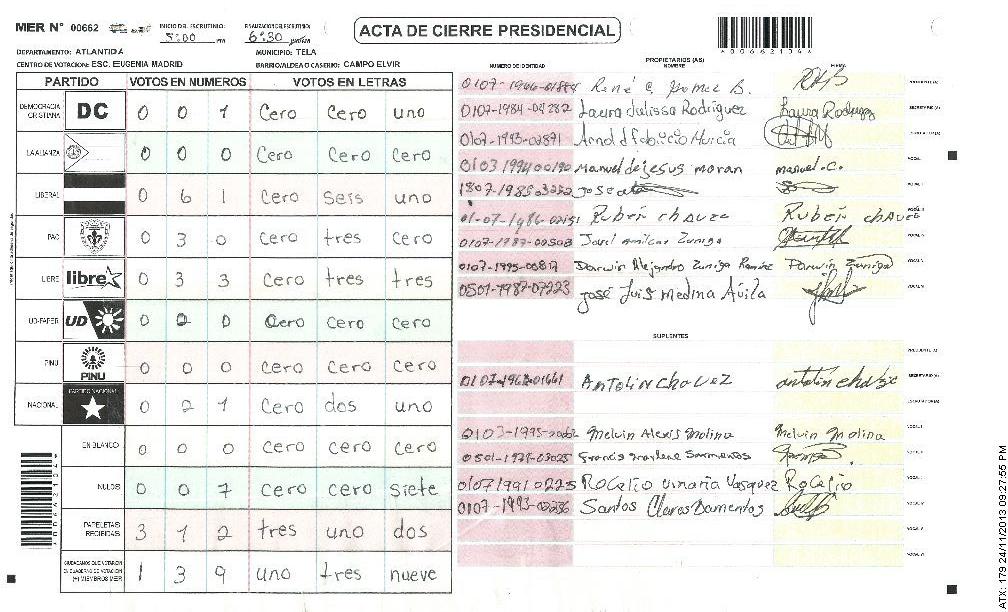 MER N° 00662
INICIO DEL ESCRUTINIO:
5:00 PM
FINALIZACION DEL ESCRUTINIO:
6:30
ACTA DE CIERRE PRESIDENCIAL
*00662104*
DEPARTAMENTO: ATLANTIDA
MUNICIPIO: TELA
CENTRO DE VOTACION: ESC. EUGENIA MADRID
BARRIO/ALDEA O CASERIO: CAMPO ELVIR
PARTIDO VOTOS EN NUMEROS VOTOS EN LETRAS
DEMOCRACIA CRISTIANA DC 0 0 1 Cero Cero uno
LA ALIANZA 0 0 0 Cero Cero Cero
LIBERAL 0 6 1 Cero seis uno
PAC 0 3 0 Cero tres Cero
LIBRE libre 0 3 3 Cero tres tres
UD-FAPER UD 0 0 0 Cero Cero Cero
PINU PINU 0 0 0 Cero Cero Cero
NACIONAL PARTIDO NACIONAL 0 2 1 Cero dos uno
EN BLANCO 0 0 0 Cero Cero Cero
NULOS 0 0 7 Cero Cero siete
PAPELETAS RECIBIDAS 3 1 2 tres uno dos
CIUDADANOS QUE VOTARON EN CUADERNO DE VOTACION (+) MIEMBROS MER 1 3 9 uno tres nueve
PROPIETARIOS (AS)
NUMERO DE IDENTIDAD NOMBRE FIRMA
0107-1966-01884 René C Gomez B.
0107-1984-04282 Laura Julissa Rodriguez Laura Rodriguez
0107-1993-02891 Arnold fabricio Murcia
0103 1994 00190 Manuel de jesus moran manuel.C.
1807-1985 jose
01-07-1986-02151 Ruber chavez Ruber chavez
0107-1987-00508 Joel Amilcar Zuniga
0107-1995-00817 Darwin Alejandro Zuniga Ramirez Darwin Zuniga
0501-1987-07223 José Luis Medina Ávila
SUPLENTES
0107-1962-01661 Antolin chavez antolin chavez
0103-1995- Melvin Alexis Molina Melvin Molina
0501-1979-03025 Francis marlene Sarmentos
0107 1991 0225 Rogelio Vasquez Rogelio
0107-1993-00236 Santos
ATX: 179 24/11/2013 09:27:55 PM